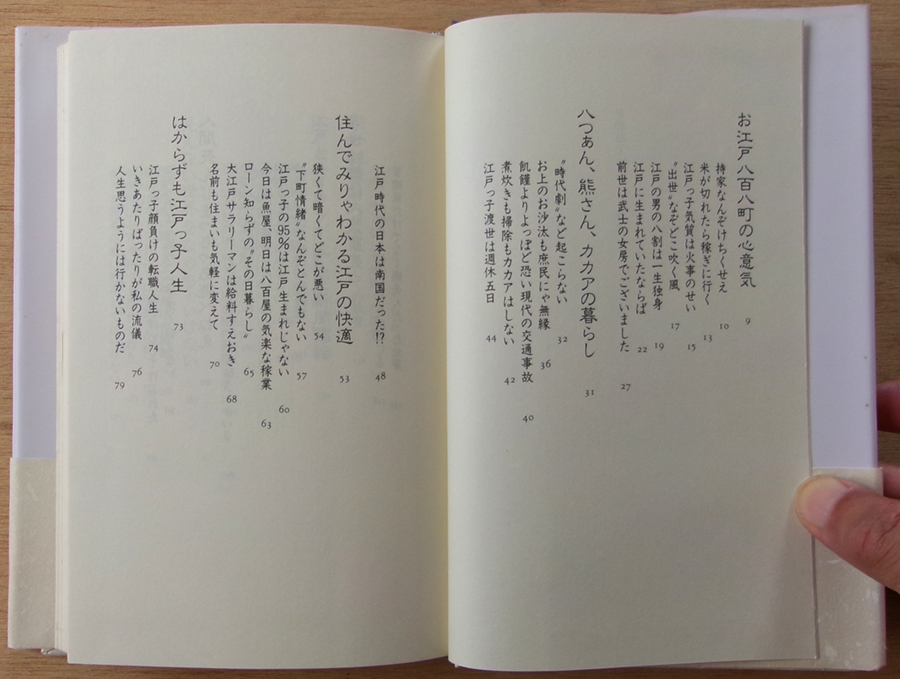 お江戸八百八町の心意気 9
持家なんぞけちくせえ 10
米が切れたら稼ぎに行く 13
江戸っ子気質は火事のせい 15
〝出世〟なぞどこ吹く風 17
江戸の男の八割は一生独身 19
江戸に生まれていたならば 22
前世は武士の女房でございました 27
八つぁん、熊さん、カカアの暮らし 31
〝時代劇〟など起こらない 32
お上のお沙汰も庶民にゃ無縁 36
飢饉よりよっぽど恐い現代の交通事故 40
煮炊きも掃除もカカアはしない 42
江戸っ子渡世は週休五日 44
江戸時代の日本は南国だった!? 48
住んでみりゃわかる江戸の快適 53
狭くて暗くてどこが悪い 54
〝下町情緒〟なんぞとんでもない 57
江戸っ子の95%は江戸生まれじゃない 60
今日は魚屋、明日は八百屋の気楽な稼業 63
ローン知らずの〝その日暮らし〟 65
大江戸サラリーマンは給料すえおき 68
名前も住まいも気軽に変えて 70
はからずも江戸っ子人生 73
江戸っ子顔負けの転職人生 74
いきあたりばったりが私の流儀 76
人生思うようには行かないものだ 79